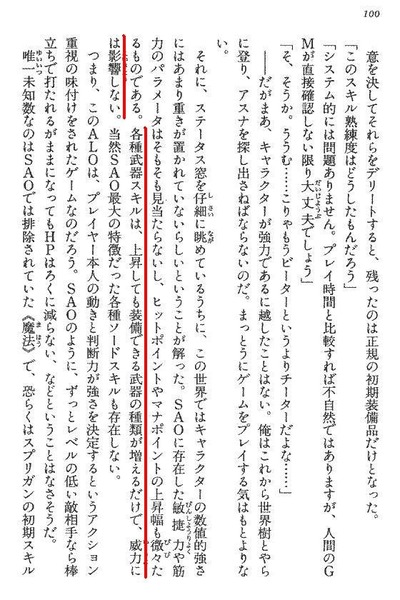 100
意を決してそれらをデリートすると、残ったのは正規の初期装備品だけとなった。
「このスキル熟練度はどうしたもんだろう」
「システム的には問題ありません。プレイ時間と比較すれば不自然ではありますが、人間のG
Mが直接確認しない限り大丈夫でしょう」
「そ、そうか。ううむ……こりゃもうビーターというよりチーターだよな……」
――だがまあ、キャラクターが強力であるに越したことはない。俺はこれから世界樹とやら
に登り、アスナを探し出さねばならないのだ。まっとうにゲームをプレイする気はもとよりな
い。
それに、ステータス窓を仔細に眺めているうちに、この世界ではキャラクターの数値的強さ
にはあまり重きが置かれていないらしいということが解った。SAOに存在した敏捷力や筋
力のパラメータはそもそも見当たらないし、ヒットポイントやマナポイントの上昇幅も微々た
るものである。各種武器スキルは、上昇しても装備できる武器の種類が増えるだけで、威力に
は影響しない。当然SAO最大の特徴だった各種ソードスキルも存在しない。
つまり、このALOは、プレイヤー本人の動きと判断力が強さを決定するというアクション
重視の味付けをされたゲームなのだろう。SAOのように、ずっとレベルの低い敵相手なら棒
立ちで打たれるがままになってもHPはろくに減らない、などということはなさそうだ。
唯一未知数なのはSAOでは排除されていた《魔法》で、恐らくはスプリガンの初期スキル